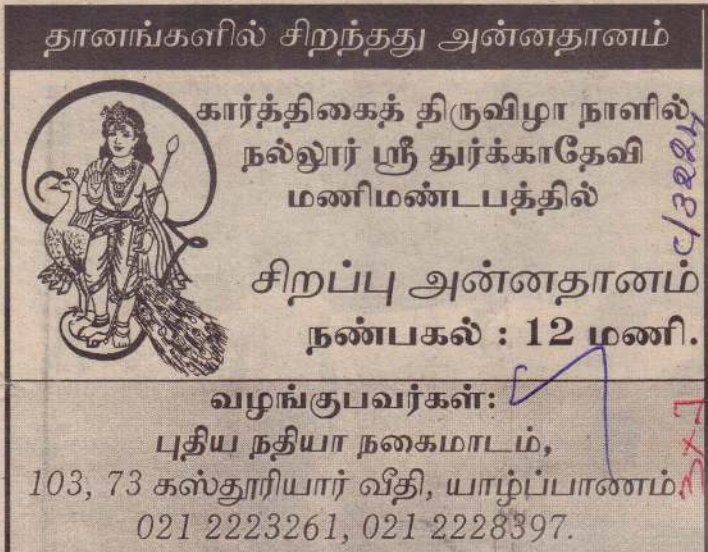 தானங்களில் சிறந்தது அன்னதானம்
கார்த்திகைத் திருவிழா நாளில்
நல்லூர் ஸ்ரீ துர்க்காதேவி
மணிமண்டபத்தில்
சிறப்பு அன்னதானம்
நண்பகல் : 12 மணி.
வழங்குபவர்கள்:
புதிய நதியா நகைமாடம்,
103, 73 கஸ்தூரியார் வீதி, யாழ்ப்பாணம்
021 2223261, 021 2228397.
C/32224
3×7